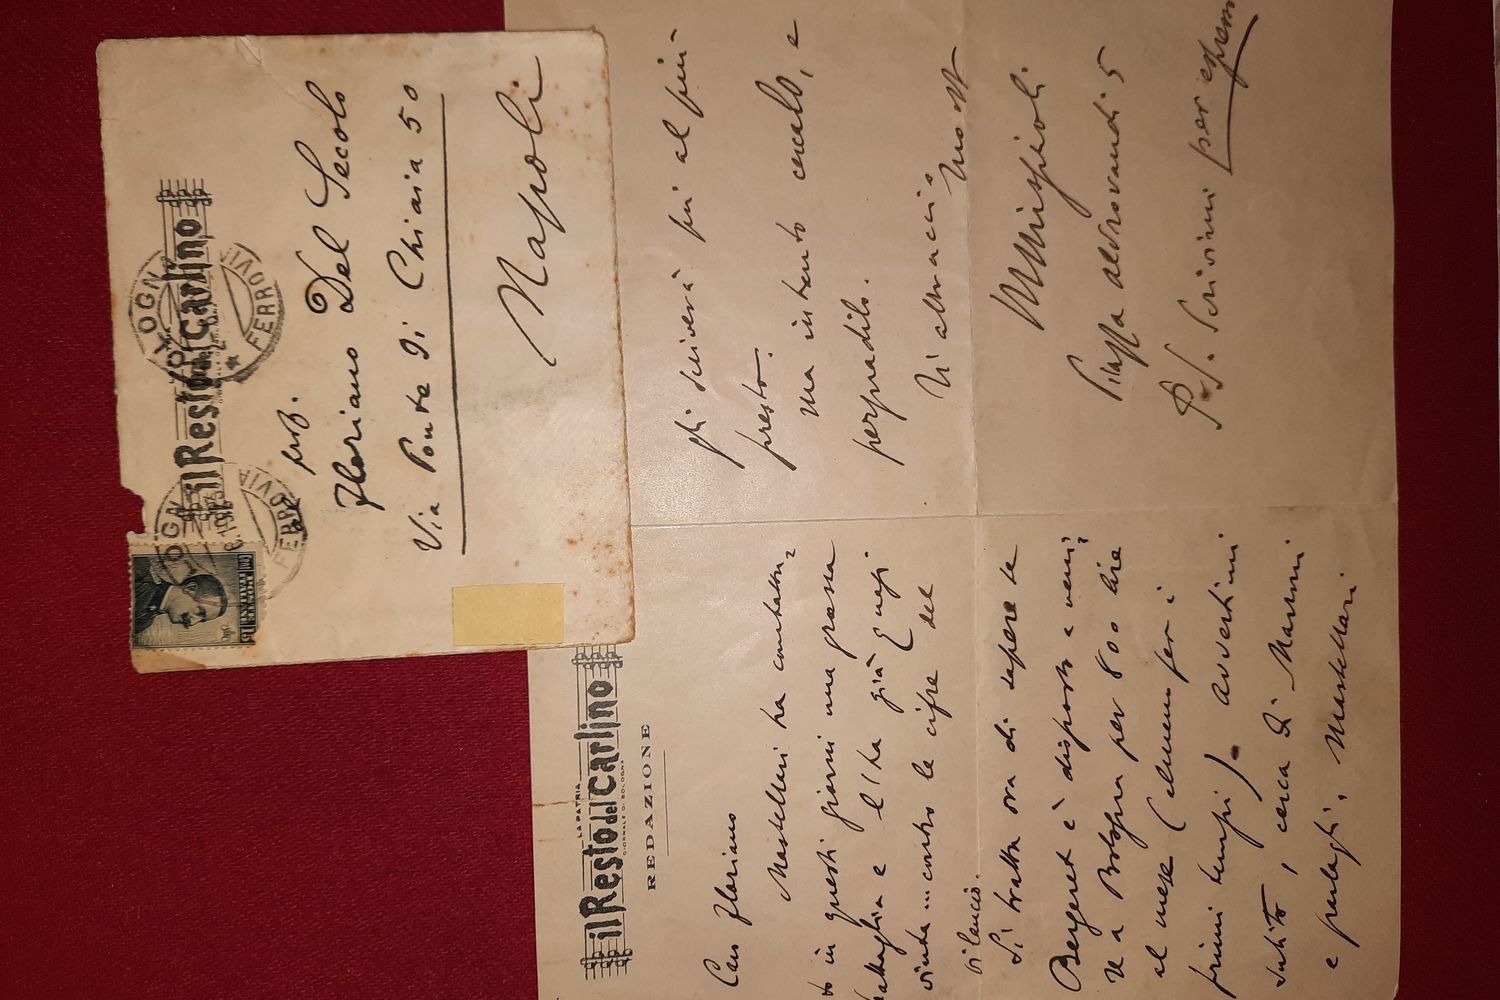 il Resto del Carlino
OLOGN
FERROVIA
prof.
Floriano Del Secolo
Via Ponte di Chiaia 50
Napoli
LA PATRIA
il Resto del Carlino
GIORNALE DI BOLOGNA
REDAZIONE
Caro Floriano
Mastellari ha combattu=
to in questi giorni una grossa
battaglia e l'ha già quasi
vinta... contro le cifre del
bilancio.
Si tratta ora di sapere se
Bergeret è disposto a veni=
re a Bologna per 800 lire
al mese (almeno per i
primi tempi). Avvertimi
subito, cerca di
e parlagli. Mastellari
gli scriverà poi al più
presto.
Ma intanto cercalo, e
persuadilo.
Ti abbraccio
tuo
MMissiroli
Piazza Aldrovandi 5
P.S. Scrivimi per espresso